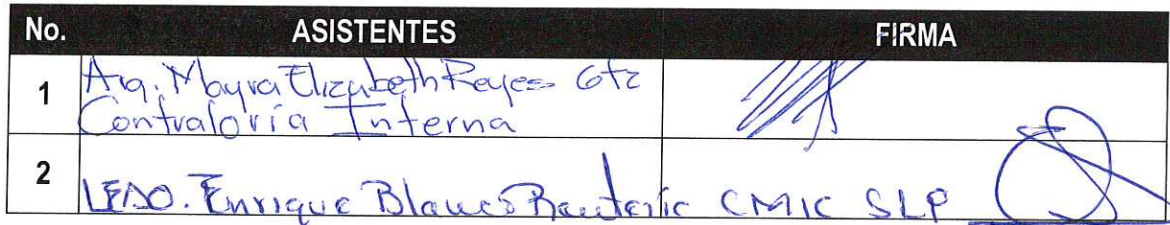 No. ASISTENTES FIRMA
1 Arq. Mayra Elizabeth Reyes Gtz
Contraloría Interna
2 LEDO. Enrique Blanco CMIC SLP